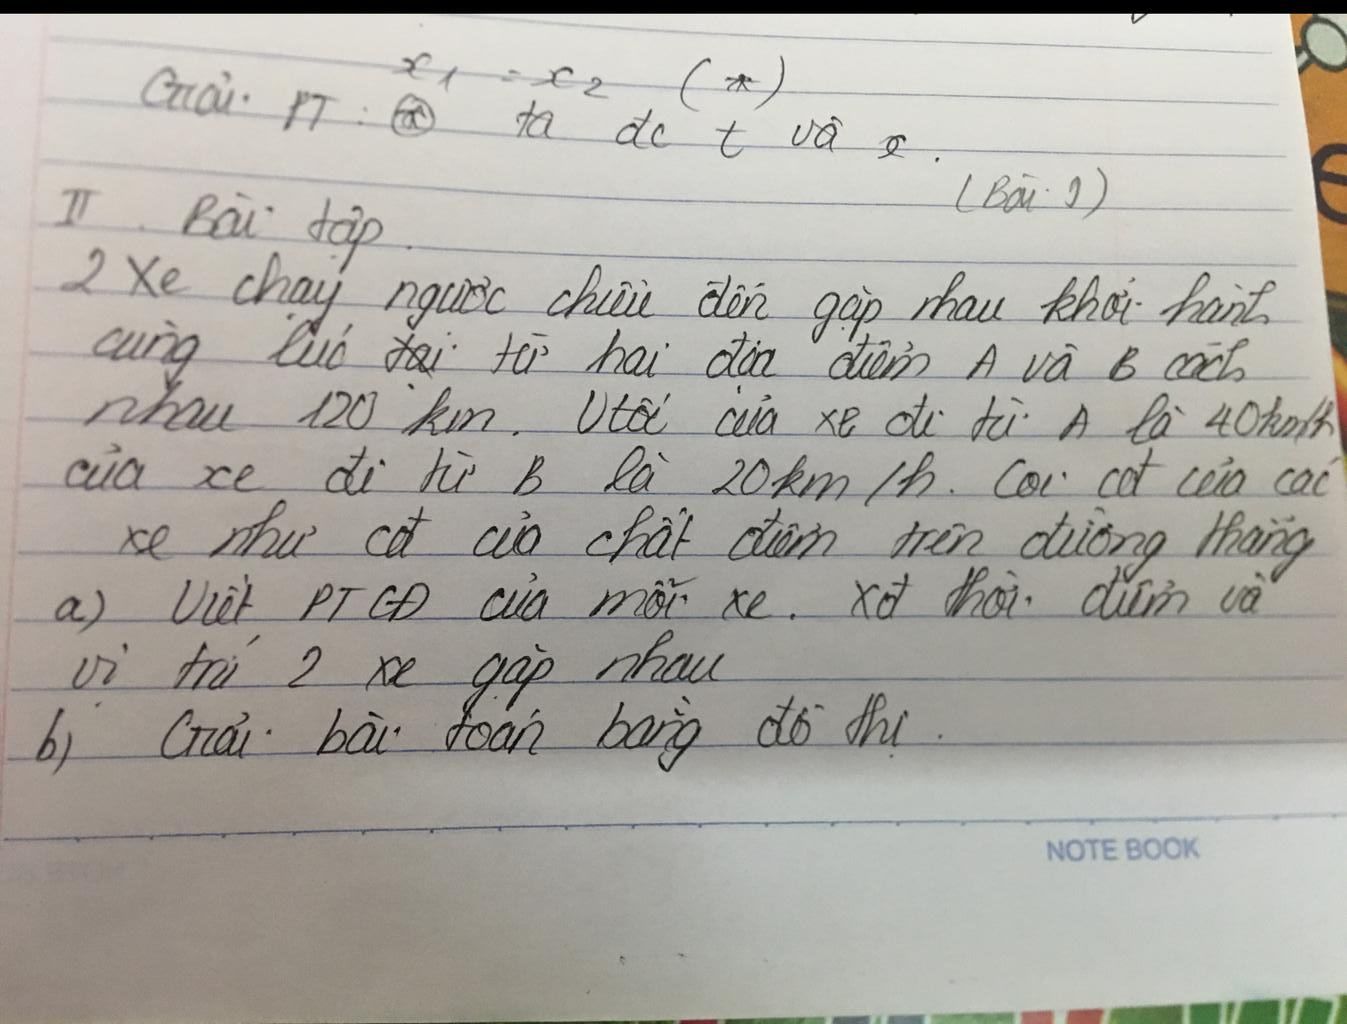 x₁ = x₂ (*)
Giải PT : (*) ta đc t và x.
(Bài 1)
II. Bài tập.
2 xe chạy ngược chiều đến gặp nhau khởi hành
cùng lúc tại từ hai địa điểm A và B cách
nhau 120 km. Vtốc của xe đi từ A là 40km/h
của xe đi từ B là 20km/h. Coi cđ của các
xe như cđ của chất điểm trên đường thẳng
a) Viết PTCĐ của mỗi xe. Xđ thời điểm và
vị trí 2 xe gặp nhau
b) Giải bài toán bằng đồ thị.
NOTE BOOK